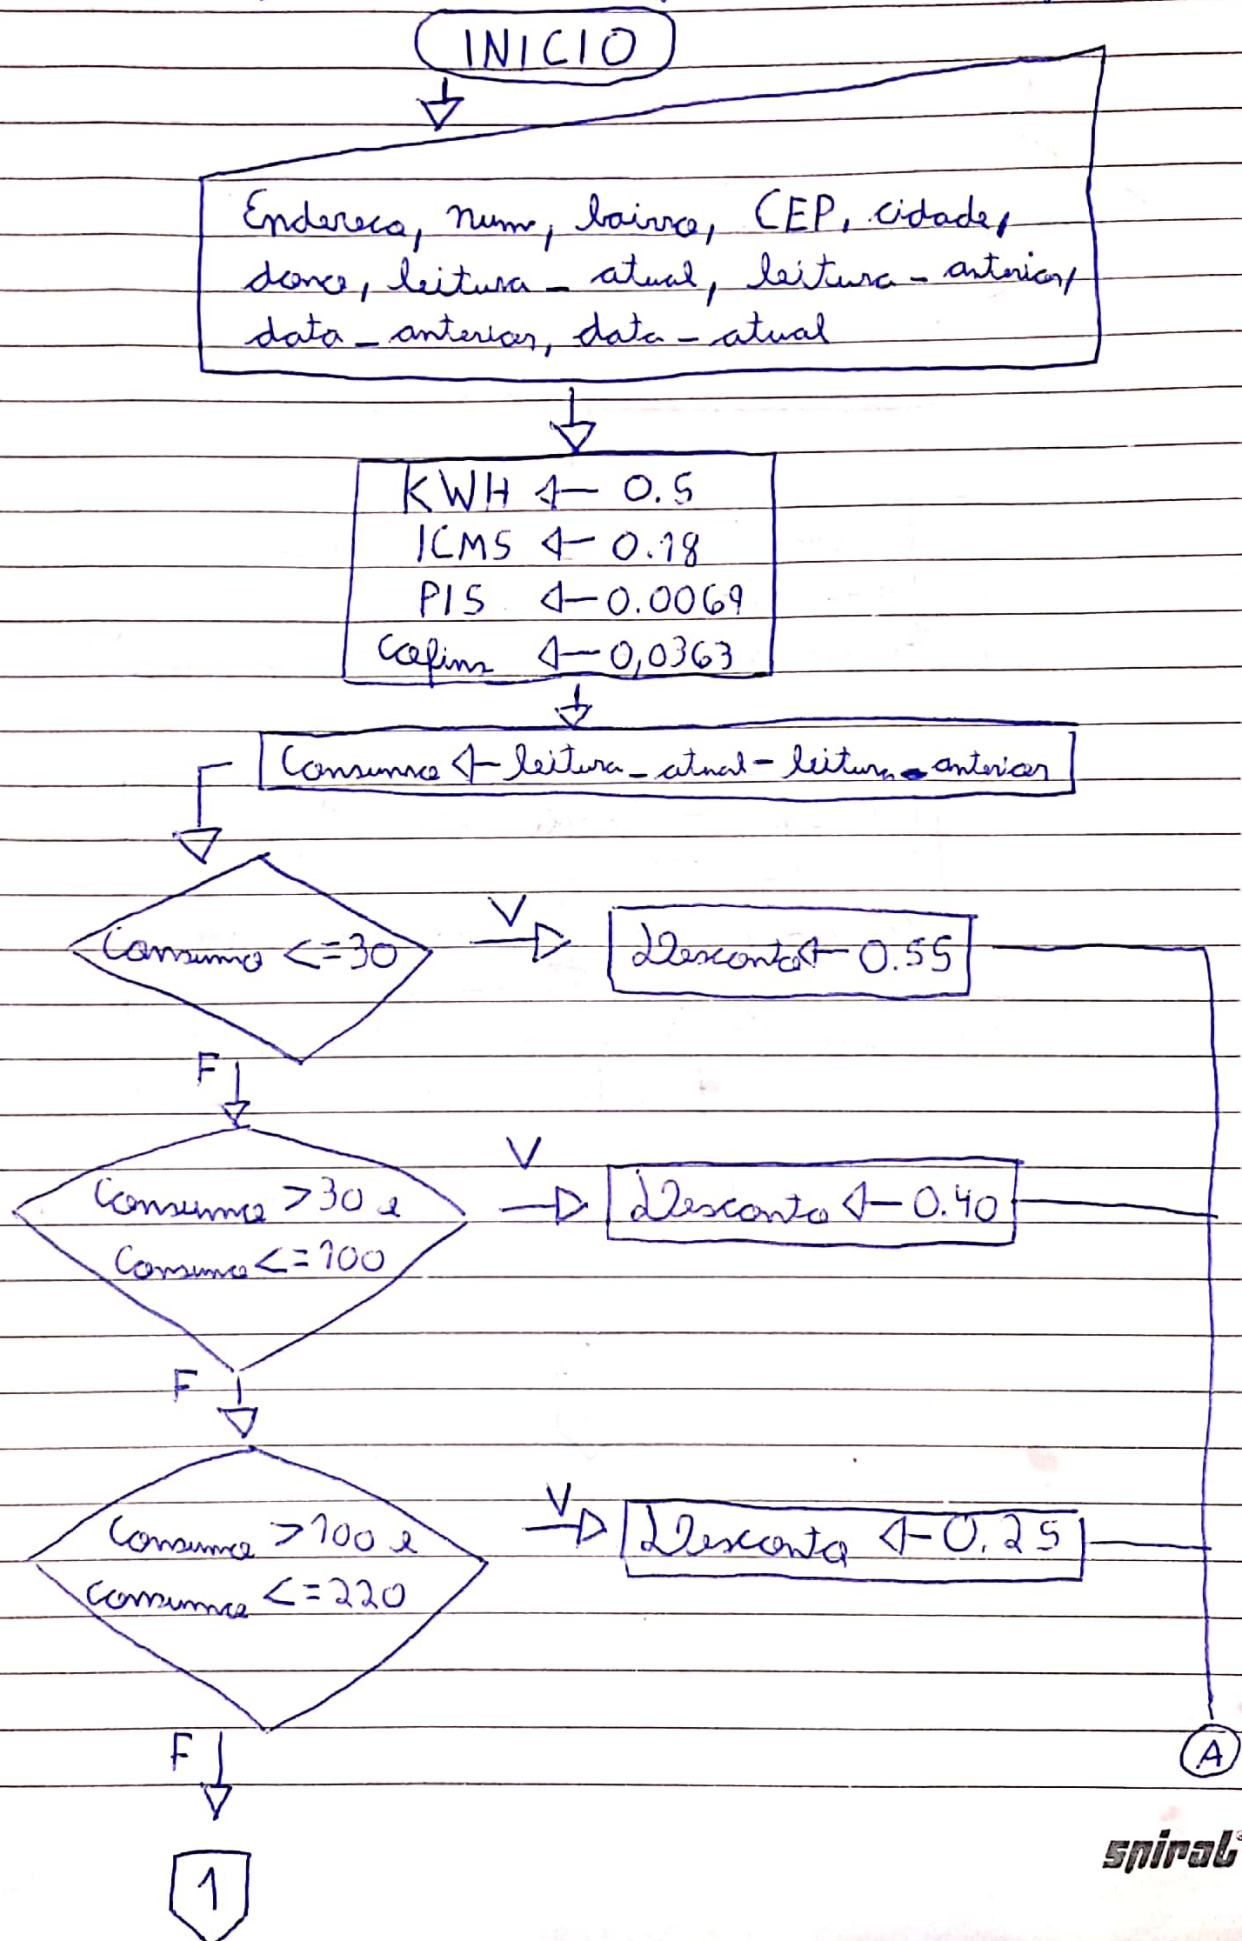 INICIO
Endereco, num, bairro, CEP, cidade,
dono, leitura_atual, leitura_anterior,
data_anterior, data_atual
KWH ← 0.5
ICMS ← 0.18
PIS ← 0.0069
Cofins ← 0,0363
Consumo ← leitura_atual - leitura_anterior
Consumo <=30
V
Desconto ← 0.55
F
Consumo >30 e
Consumo <=100
V
Desconto ← 0.40
F
Consumo >100 e
consumo <=220
V
Desconto ← 0.25
F
A
1
spiral